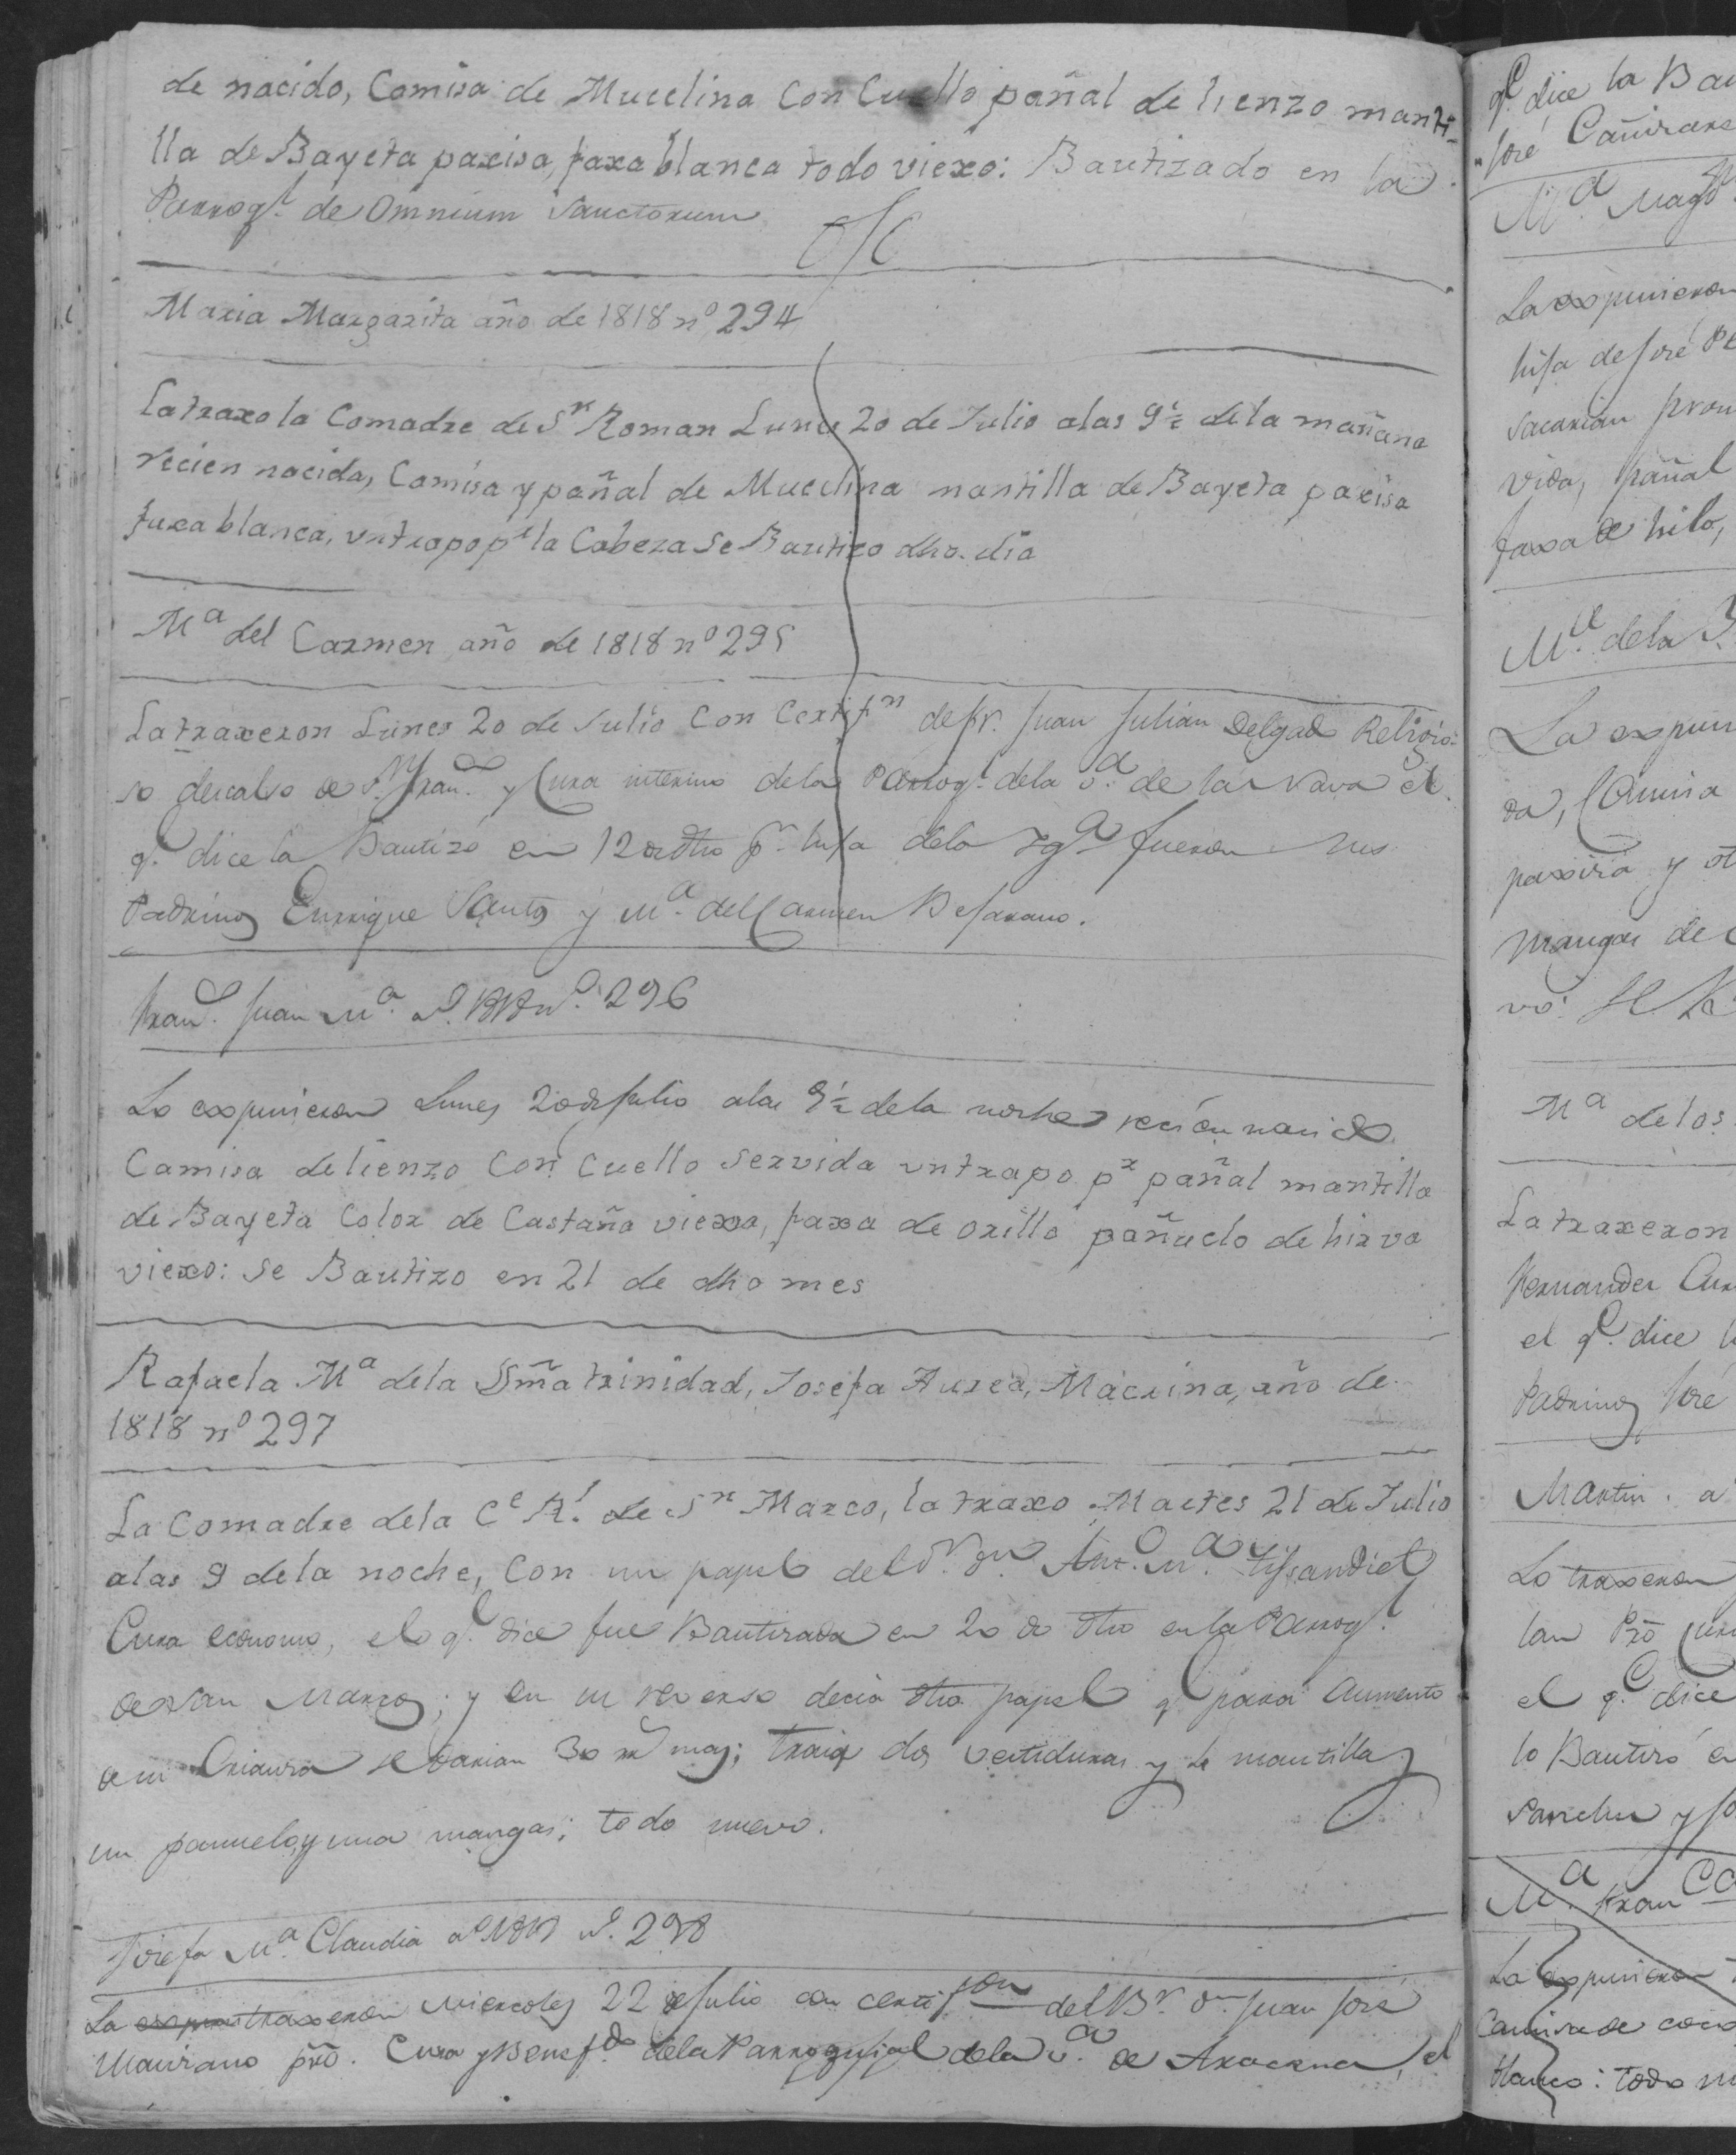 de nacido, Camisa de Mucelina Con Cuello pañal de lienzo manti-
lla de Bayeta paxisa, faxa blanca todo viexo: Bautizado en la
Parroq.l de Omnium Sanctorum
Maria Margarita año de 1818 nº 294
La traxo la Comadre de Sn Roman Lunes 20 de Julio alas 9½ de la mañana
recien nacida, Camisa y pañal de Mucelina mantilla de Bayeta paxisa
faxa blanca, un trapo pr la Cabeza Se Bautizo dho. dia
Mª del Carmen año de 1818 nº 295
La traxeron Lunes 20 de Julio Con Certifn de fr. Juan Julian Delgado Religio-
so descalso de Sn Franco y Cura interino de la Parroql de la va de la Nava el
qe dice la Bautizó en 12 de dho pr hija de la Yga fueron sus
Padrinos Enrrique Santos y Mª del Carmen Befarano.
Franco Juan Mª aº 1818 nº 296
Lo expusieron Lunes 20 de Julio alas 9½ de la noche recien nacido
Camisa de lienzo Con Cuello servida un trapo pr pañal mantilla
de Bayeta Color de Castaña viexa, faxa de orillo pañuelo de hirva
viexo: Se Bautizo en 21 de dho mes
Rafaela Mª de la SSma trinidad, Josefa Aurea, Macrina, año de
1818 nº 297
La Comadre de la Ce Rl de Sn Marco, la traxo Martes 21 de Julio
alas 9 de la noche, Con un papel del Sr Dn Antº Mª
Cura economo, el qe dice fue Bautizada en 20 de dho en la Parroql
de San Marcos; y en su reverso decia otro papel qe para aumento
de su Crianza se darian 30 rrs mas; traia dos vestiduras y de mantillas
un panuelo, y una mangas; todo nuevo.
Josefa Mª Claudia aº 1818 nº 298
La traxeron Miercoles 22 de Julio con certificon del Br Dn Juan José
Manzano pro. Cura y Benefdo de la Parroquial de la va de Aracena, el
qe dice la Bau
José Cañizare
Mª Magd
La expusieron
hija de José
sacarian pron
vida, pañal
faxa de hilo,
Mª de la
La expusi
da, Camisa
paxisa y ot
mangas de
vo: Se
Mª de los
La traxeron
Fernandez Cur
el qe dice l
Padrinos José
Martin. a
Lo traxeron
lan Pro Cura
el qe dice
lo Bautizó en
Sanchez y
Mª Franca
La expusieron
Camisa de
blanco: todo